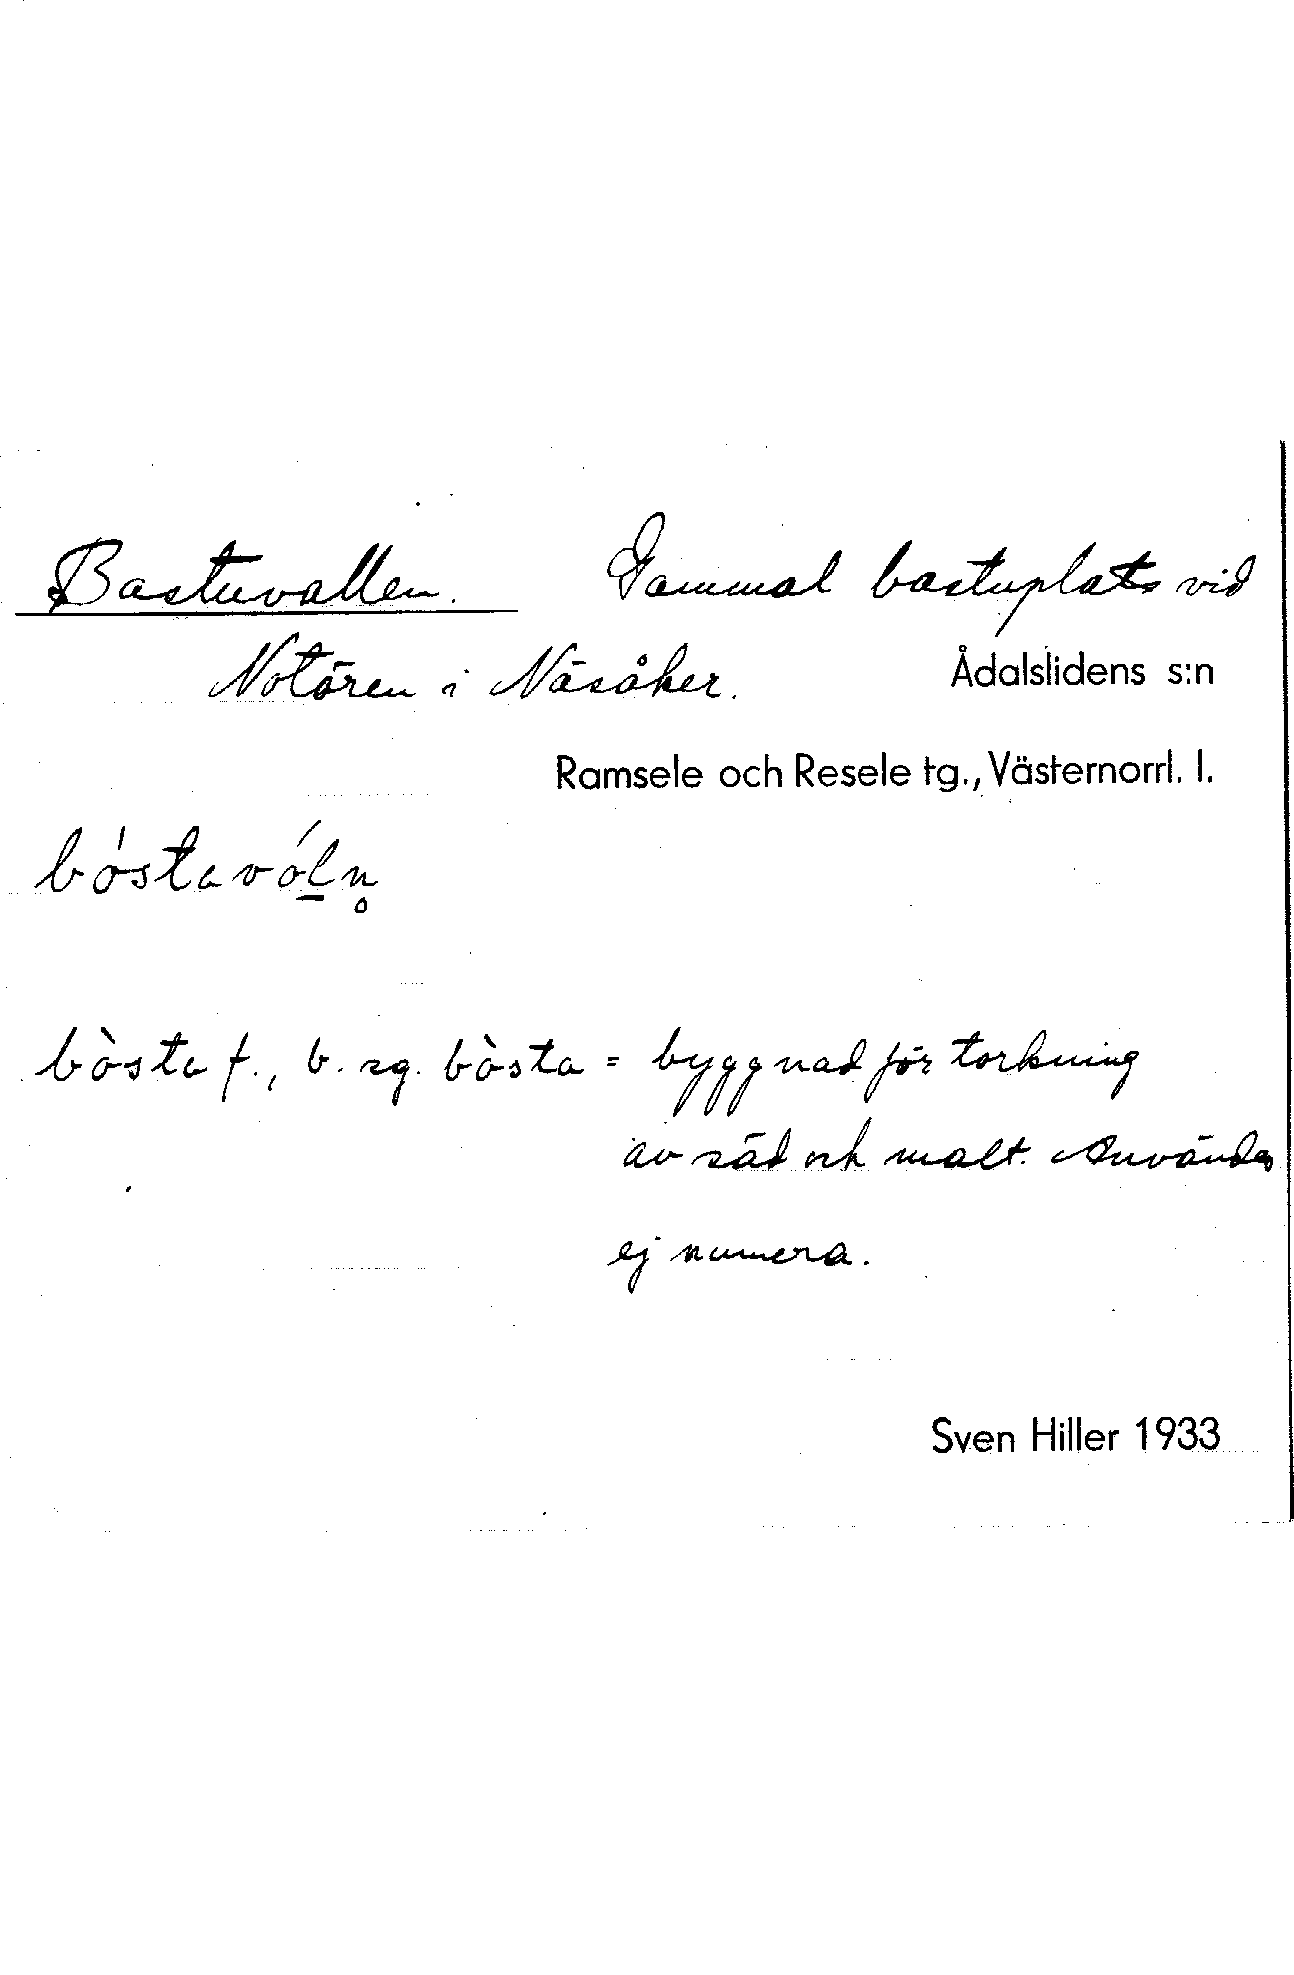 Bastuvallen. Gammal bastuplats vid
Notören i Näsåker. Ådalslidens s:n
Ramsele och Resele tg., Västernorrl. l.
bóstavól̲n̥
bòsta f., b. sg. bòsta = byggnad för torkning
av säd och malt. Användes
ej numera.
Sven Hiller 1933